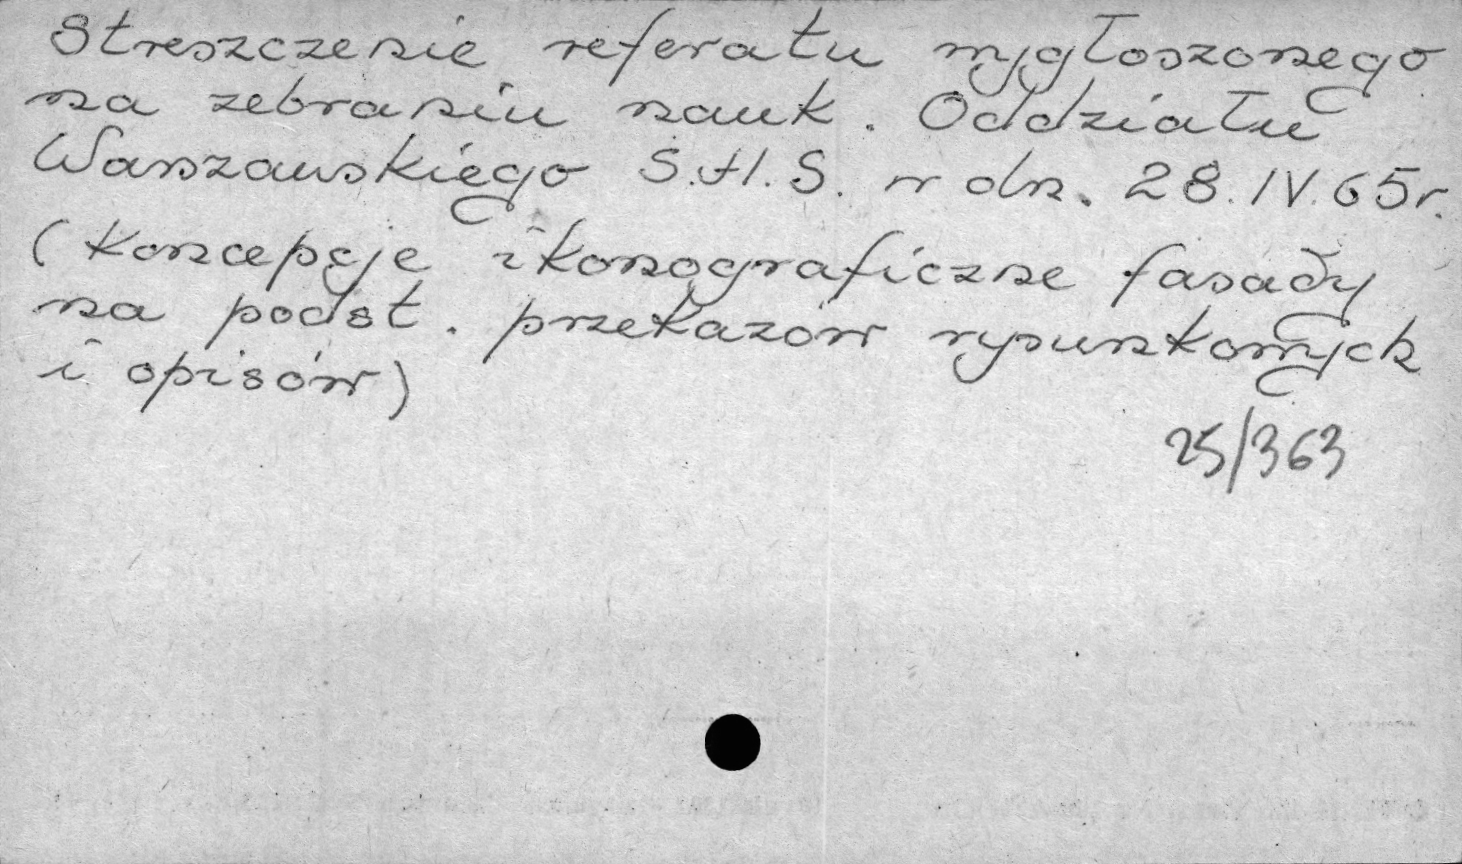 Streszczenie referatu wygłoszonego
na zebraniu nauk. Oddziału
Warszawskiego S.H.S. w dn. 28.IV.65r.
(Koncepcje ikonograficzne fasady
na podst. przekazów rysunkowych
i opisów)
25/363